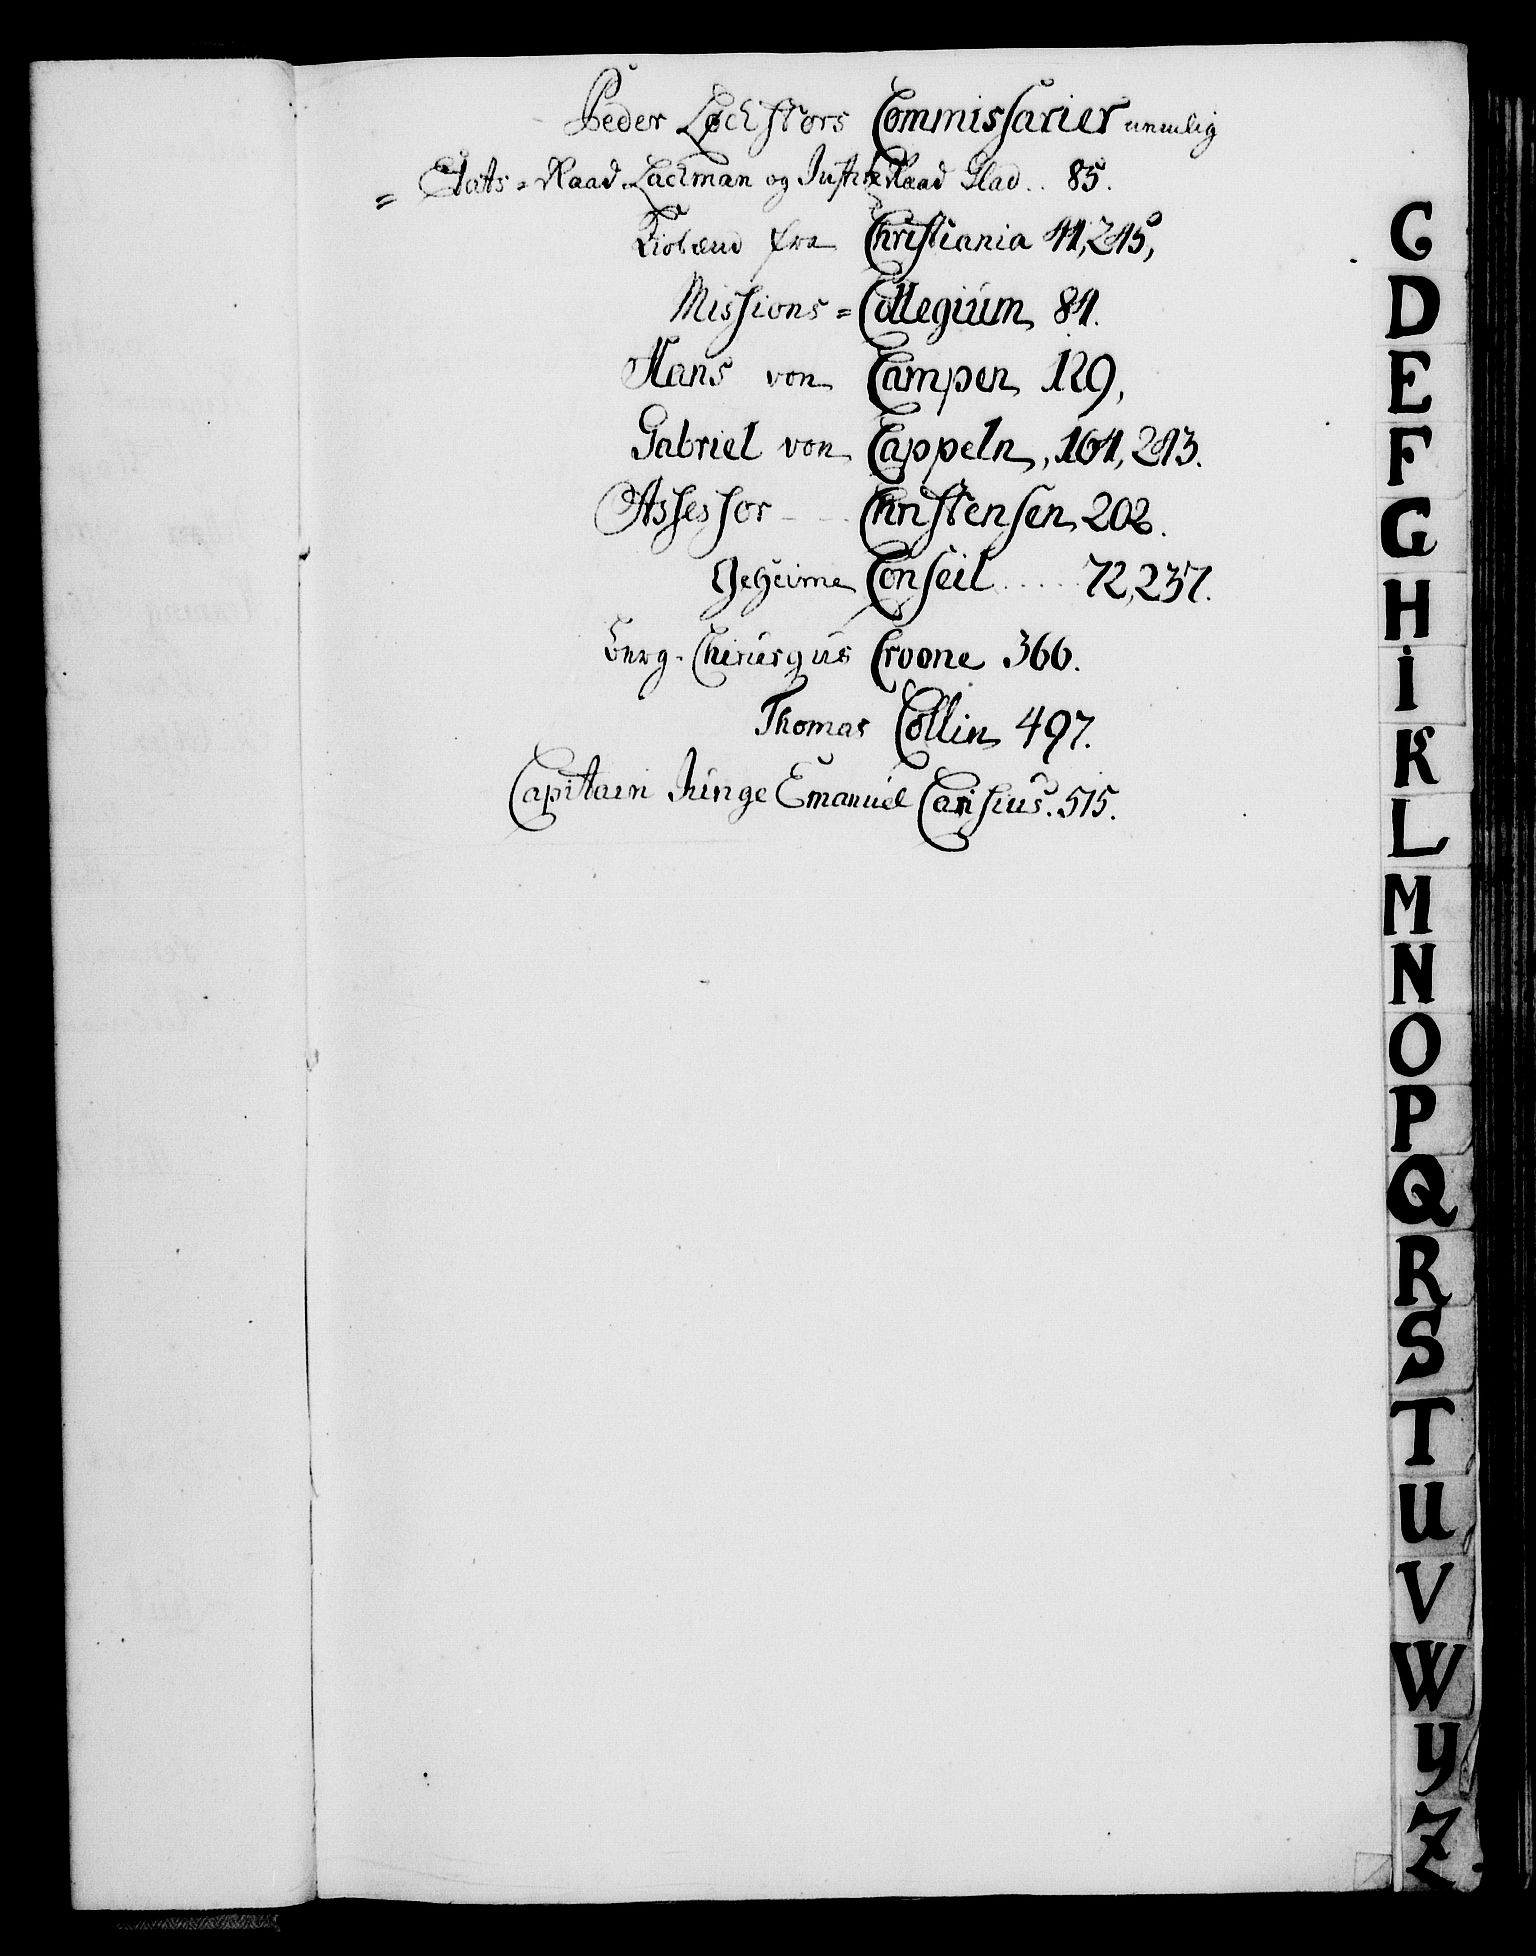 Peder Løchstørs Commissarier nemlig
= Etats=Raad Lachman og Justitz Raad Glad.. 85.
fra Christiania 41, 245,
Missions=Collegium 84.
Hans von Campen 129,
Gabriel von Cappeln, 164, 243.
Assessor - - Christensen 202.
Geheime Conseil .... 72, 237.
Berg-Chirurgus Croone 366.
Thomas Collin 497.
Capitain Junge Emanuel Carisius. 515.
C
D
E
F
G
H
I
K
L
M
N
O
P
Q
R
S
T
U
V
W
Y
Z